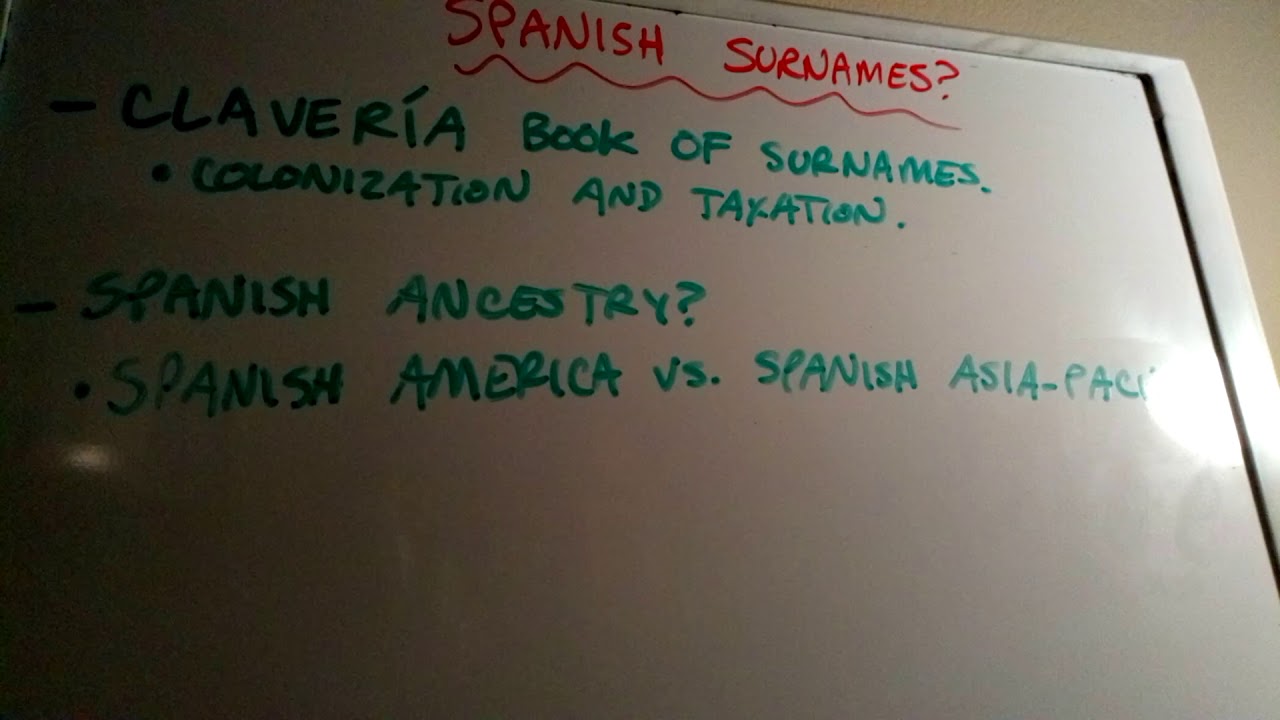 SPANISH SURNAMES?
- CLAVERÍA BOOK OF SURNAMES.
• COLONIZATION AND TAXATION.
- SPANISH ANCESTRY?
• SPANISH AMERICA VS. SPANISH ASIA-PACI